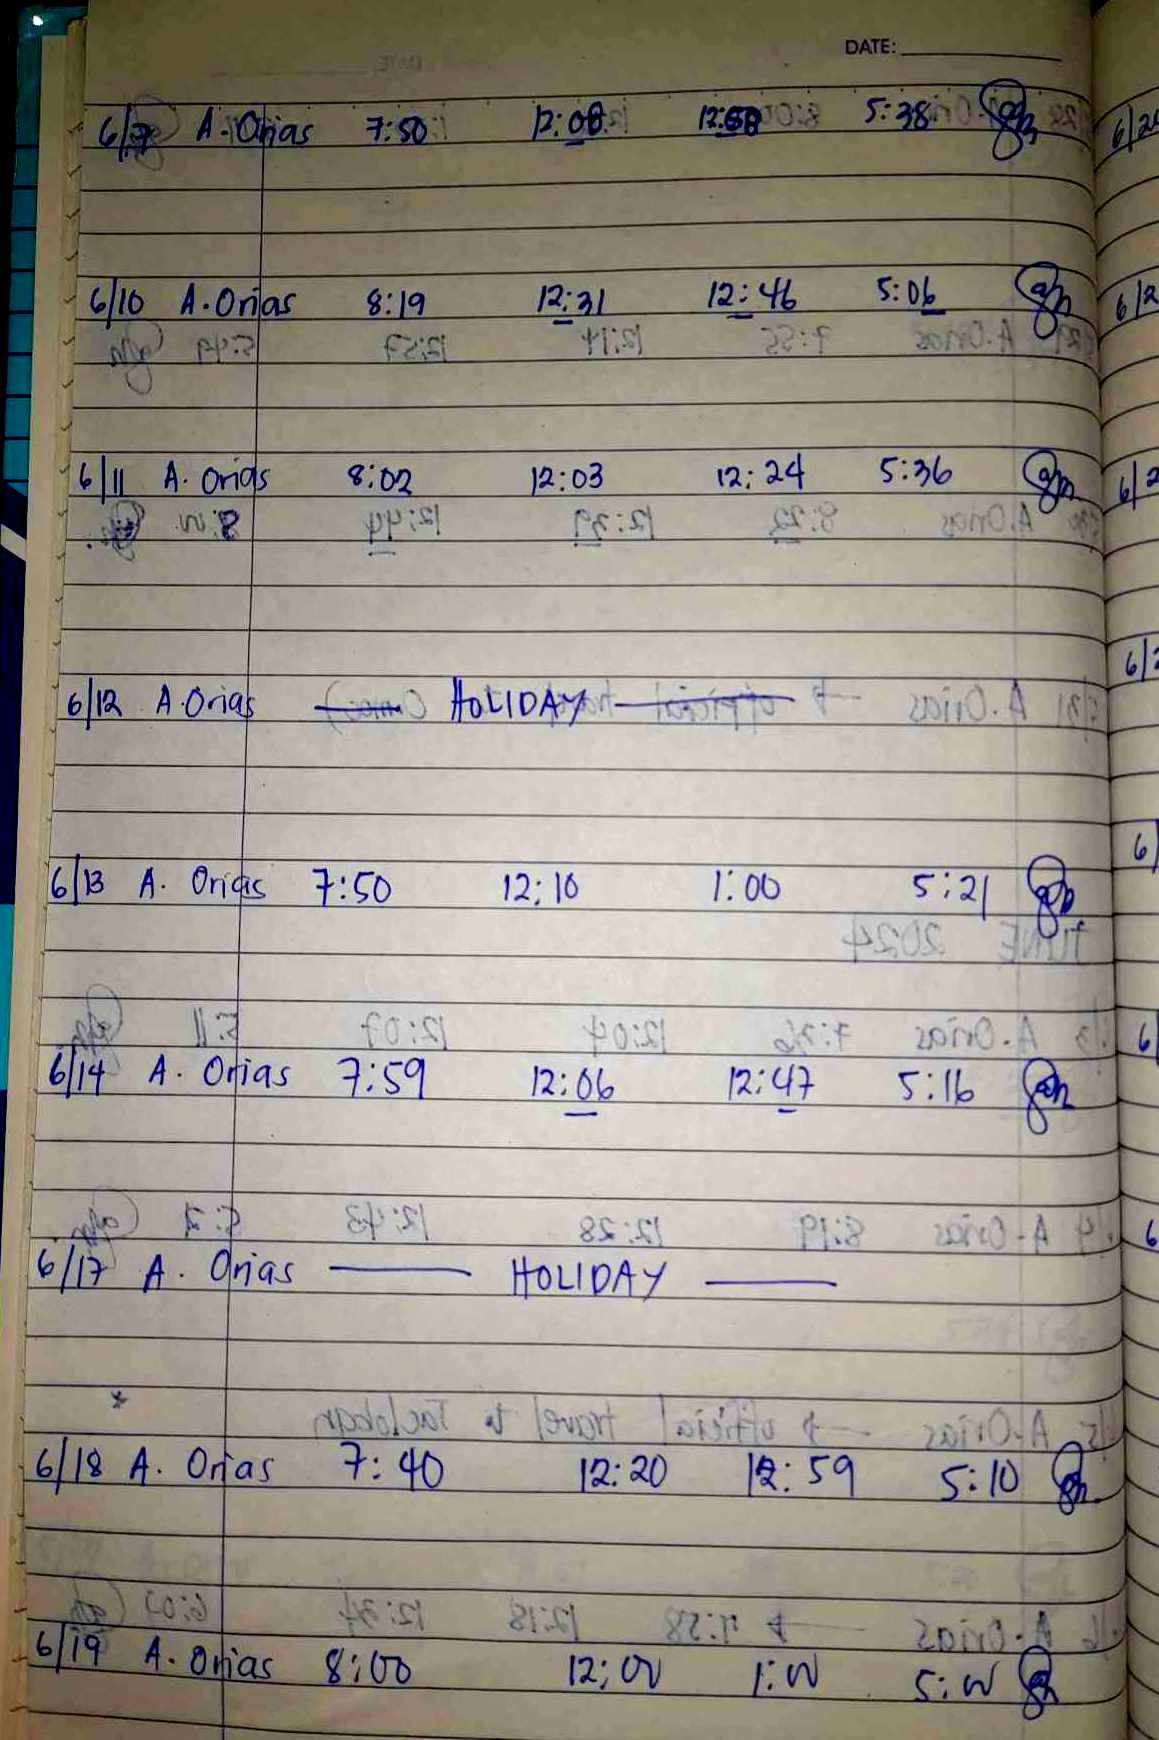 DATE:
6/7 A. Orias 7:50 12:08 12:58 5:38
6/10 A. Orias 8:19 12:31 12:46 5:06
6/11 A. Orias 8:02 12:03 12:24 5:36
6/12 A. Orias — HOLIDAY —
6/13 A. Orias 7:50 12:10 1:00 5:21
6/14 A. Orias 7:59 12:06 12:47 5:16
6/17 A. Orias — HOLIDAY —
6/18 A. Orias 7:40 12:20 12:59 5:10
6/19 A. Orias 8:00 12:00 1:00 5:00